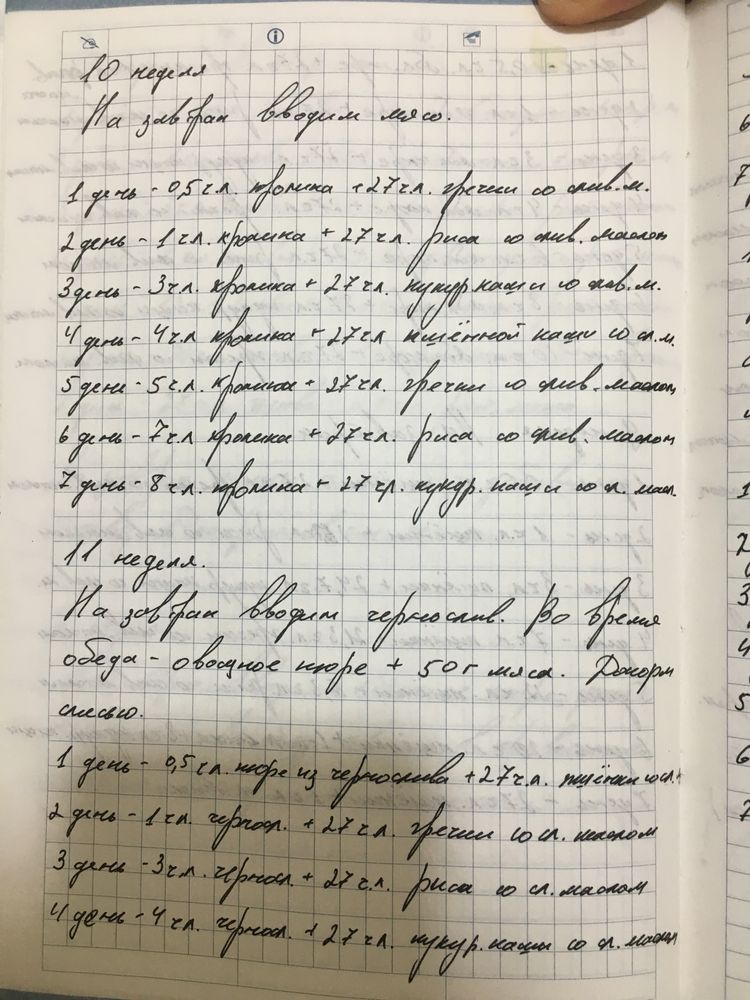 10 неделя
На завтрак вводим мясо.
1 день - 0,5 ч.л. кролика + 27 ч.л. гречки со слив. м.
2 день - 1 ч.л. кролика + 27 ч.л. риса со слив. маслом
3 день - 3 ч.л. кролика + 27 ч.л. кукур каши со слив. м.
4 день - 4 ч.л. кролика + 27 ч.л пшённой каши со сл. м.
5 день - 5 ч.л. кролика + 27 ч.л. гречки со слив. маслом
6 день - 7 ч.л кролика + 27 ч.л. риса со слив. маслом
7 день - 8 ч.л. кролика + 27 ч.л. кукур. каши со сл. масл.
11 неделя.
На завтрак вводим чернослив. Во время
обеда - овощное пюре + 50 г мяса. Докорм
смесью.
1 день - 0,5 ч.л. пюре из чернослива + 27 ч.л. пшёнки со сл.
2 день - 1 ч.л. чернсл. + 27 ч.л. гречки со сл. маслом
3 день - 3 ч.л. чернсл. + 27 ч.л. риса со сл. маслом
4 день - 4 ч.л. чернсл. + 27 ч.л. кукур. каши со сл. маслом
6
7
1
2
3
4
5
6
7